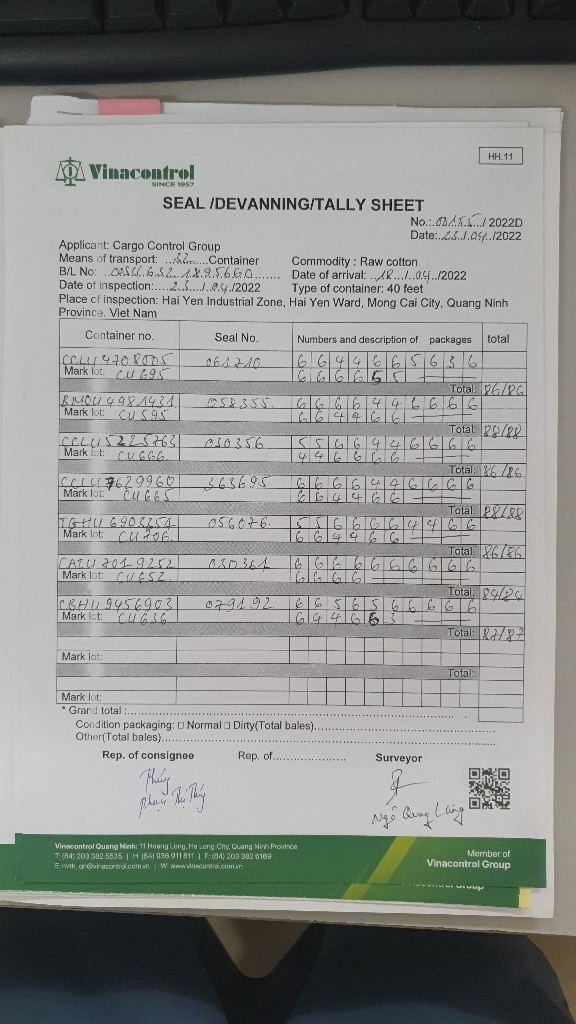 HH.11
Vinacontrol
SINCE 1957
SEAL /DEVANNING/TALLY SHEET
No.: 00155/2022D
Date: 23/04/2022
Applicant: Cargo Control Group
Means of transport: Container
Commodity : Raw cotton
B/L No:
Date of arrival: 18/04/2022
Date of inspection: 23/04/2022
Type of container: 40 feet
Place of inspection: Hai Yen Industrial Zone, Hai Yen Ward, Mong Cai City, Quang Ninh
Province, Viet Nam
Container no. Seal No. Numbers and description of packages total
CCLU 4708005 061710 6 6 4 4 6 6 5 6 3 6
Mark lot: CU695 6 6 6 6 5 5
Total: 86/86
BMOU 4981431 058355 6 6 6 6 4 4 6 6 6 6
Mark lot: CU595 6 6 4 4 6 6
Total: 88/88
CCLU 5225763 030356 5 5 6 6 4 4 6 6 6 6
Mark lot: CU666 4 4 6 6 6 6
Total: 86/86
CCLU 7629960 363695 6 6 6 6 4 4 6 6 6 6
Mark lot: CU665 6 6 4 4 6 6
Total: 88/88
TGHU 6903354 056076 5 5 6 6 6 6 4 4 6 6
Mark lot: CU706 6 6 4 4 6 6
Total: 86/86
CAIU 7019252 030361 6 6 6 6 6 6 6 6 6 6
Mark lot: CU652 6 6 6 6
Total: 84/84
CBHU 9456903 079192 6 6 5 6 5 6 6 6 6 6
Mark lot: CU636 6 4 4 6 6 3
Total: 87/87
Mark lot:
Total:
Mark lot:
* Grand total :
Condition packaging: □ Normal □ Dirty(Total bales)
Other(Total bales)
Rep. of consignee Rep. of Surveyor
Thúy
Phạm Thị Thúy
Ngô Quang
Vinacontrol Quang Ninh: 11 Hoang Long, Ha Long City, Quang Ninh Province
T: (84) 203 382 5535 | H: (84) 936 911 811 | F: (84) 203 382 6169
E: nvth_qn@vinacontrol.com.vn | W: www.vinacontrol.com.vn
Member of
Vinacontrol Group